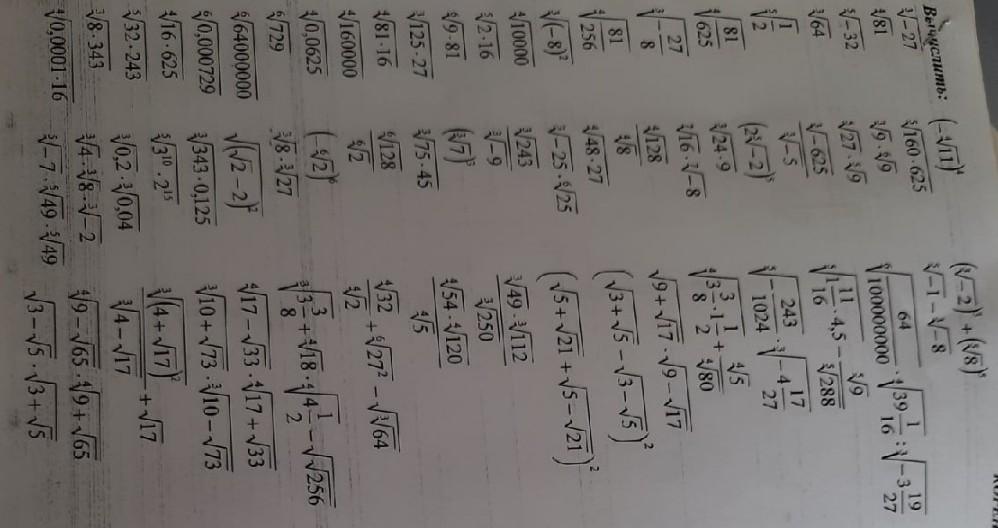 Вычислить:
∛-27
⁴√81
⁵√-32
³√64
⁵√(1/2)
⁴√(81/625)
³√(-27/8)
⁴√(81/256)
³√((-8)²)
⁴√10000
⁵√(2·16)
⁶√(9·81)
³√(125·27)
⁴√(81·16)
⁴√160000
⁴√0,0625
⁶√729
⁶√64000000
⁶√0,000729
⁴√(16·625)
⁵√(32·243)
³√(8·343)
⁴√(0,0001·16)
(-⁴√11)⁴
⁵√(160·625)
³√9·⁶√9
⁴√27·⁵√9
³√-625 / ³√-5
(2⁵√-2)⁵
³√(24·9)
³√16·³√-8
⁴√128 / ⁴√8
⁴√(48·27)
³√-25·⁶√25
³√243 / ³√-9
(³√7)³
³√(75·45)
⁶√128 / ⁶√2
(-⁶√2)⁶
³√8·³√27
√((√2-2)²)
³√(343·0,125)
⁵√(3¹⁰·2¹⁵)
³√0,2·³√0,04
³√4·³√8·³√-2
⁵√-7·⁵√49·⁵√49
(³√-2)³+(⁵√8)⁵
⁵√-1-³√-8
⁶√(64/1000000000)·⁴√(39 1/16):³√(-3 19/27)
⁵√(1 11/16·4,5)-⁵√9/⁵√288
⁵√(-243/1024)·³√(-4 17/27)
⁴√(3 3/8·1 1/2)+⁴√5/⁴√80
√(9+√17)·√(9-√17)
(√(3+√5)-√(3-√5))²
(√(5+√21)+√(5-√21))²
³√49·³√112 / ³√250
⁴√54·⁴√120 / ⁴√5
⁴√32/⁴√2+⁶√27²-√(³√64)
³√(3 3/8)+⁴√18·⁴√(4 1/2)-√(√256)
⁴√(17-√33)·⁴√(17+√33)
³√(10+√73)·³√(10-√73)
³√((4+√17)²) / ³√(4-√17)+√17
⁴√(9-√65)·⁴√(9+√65)
√(3-√5)·√(3+√5)